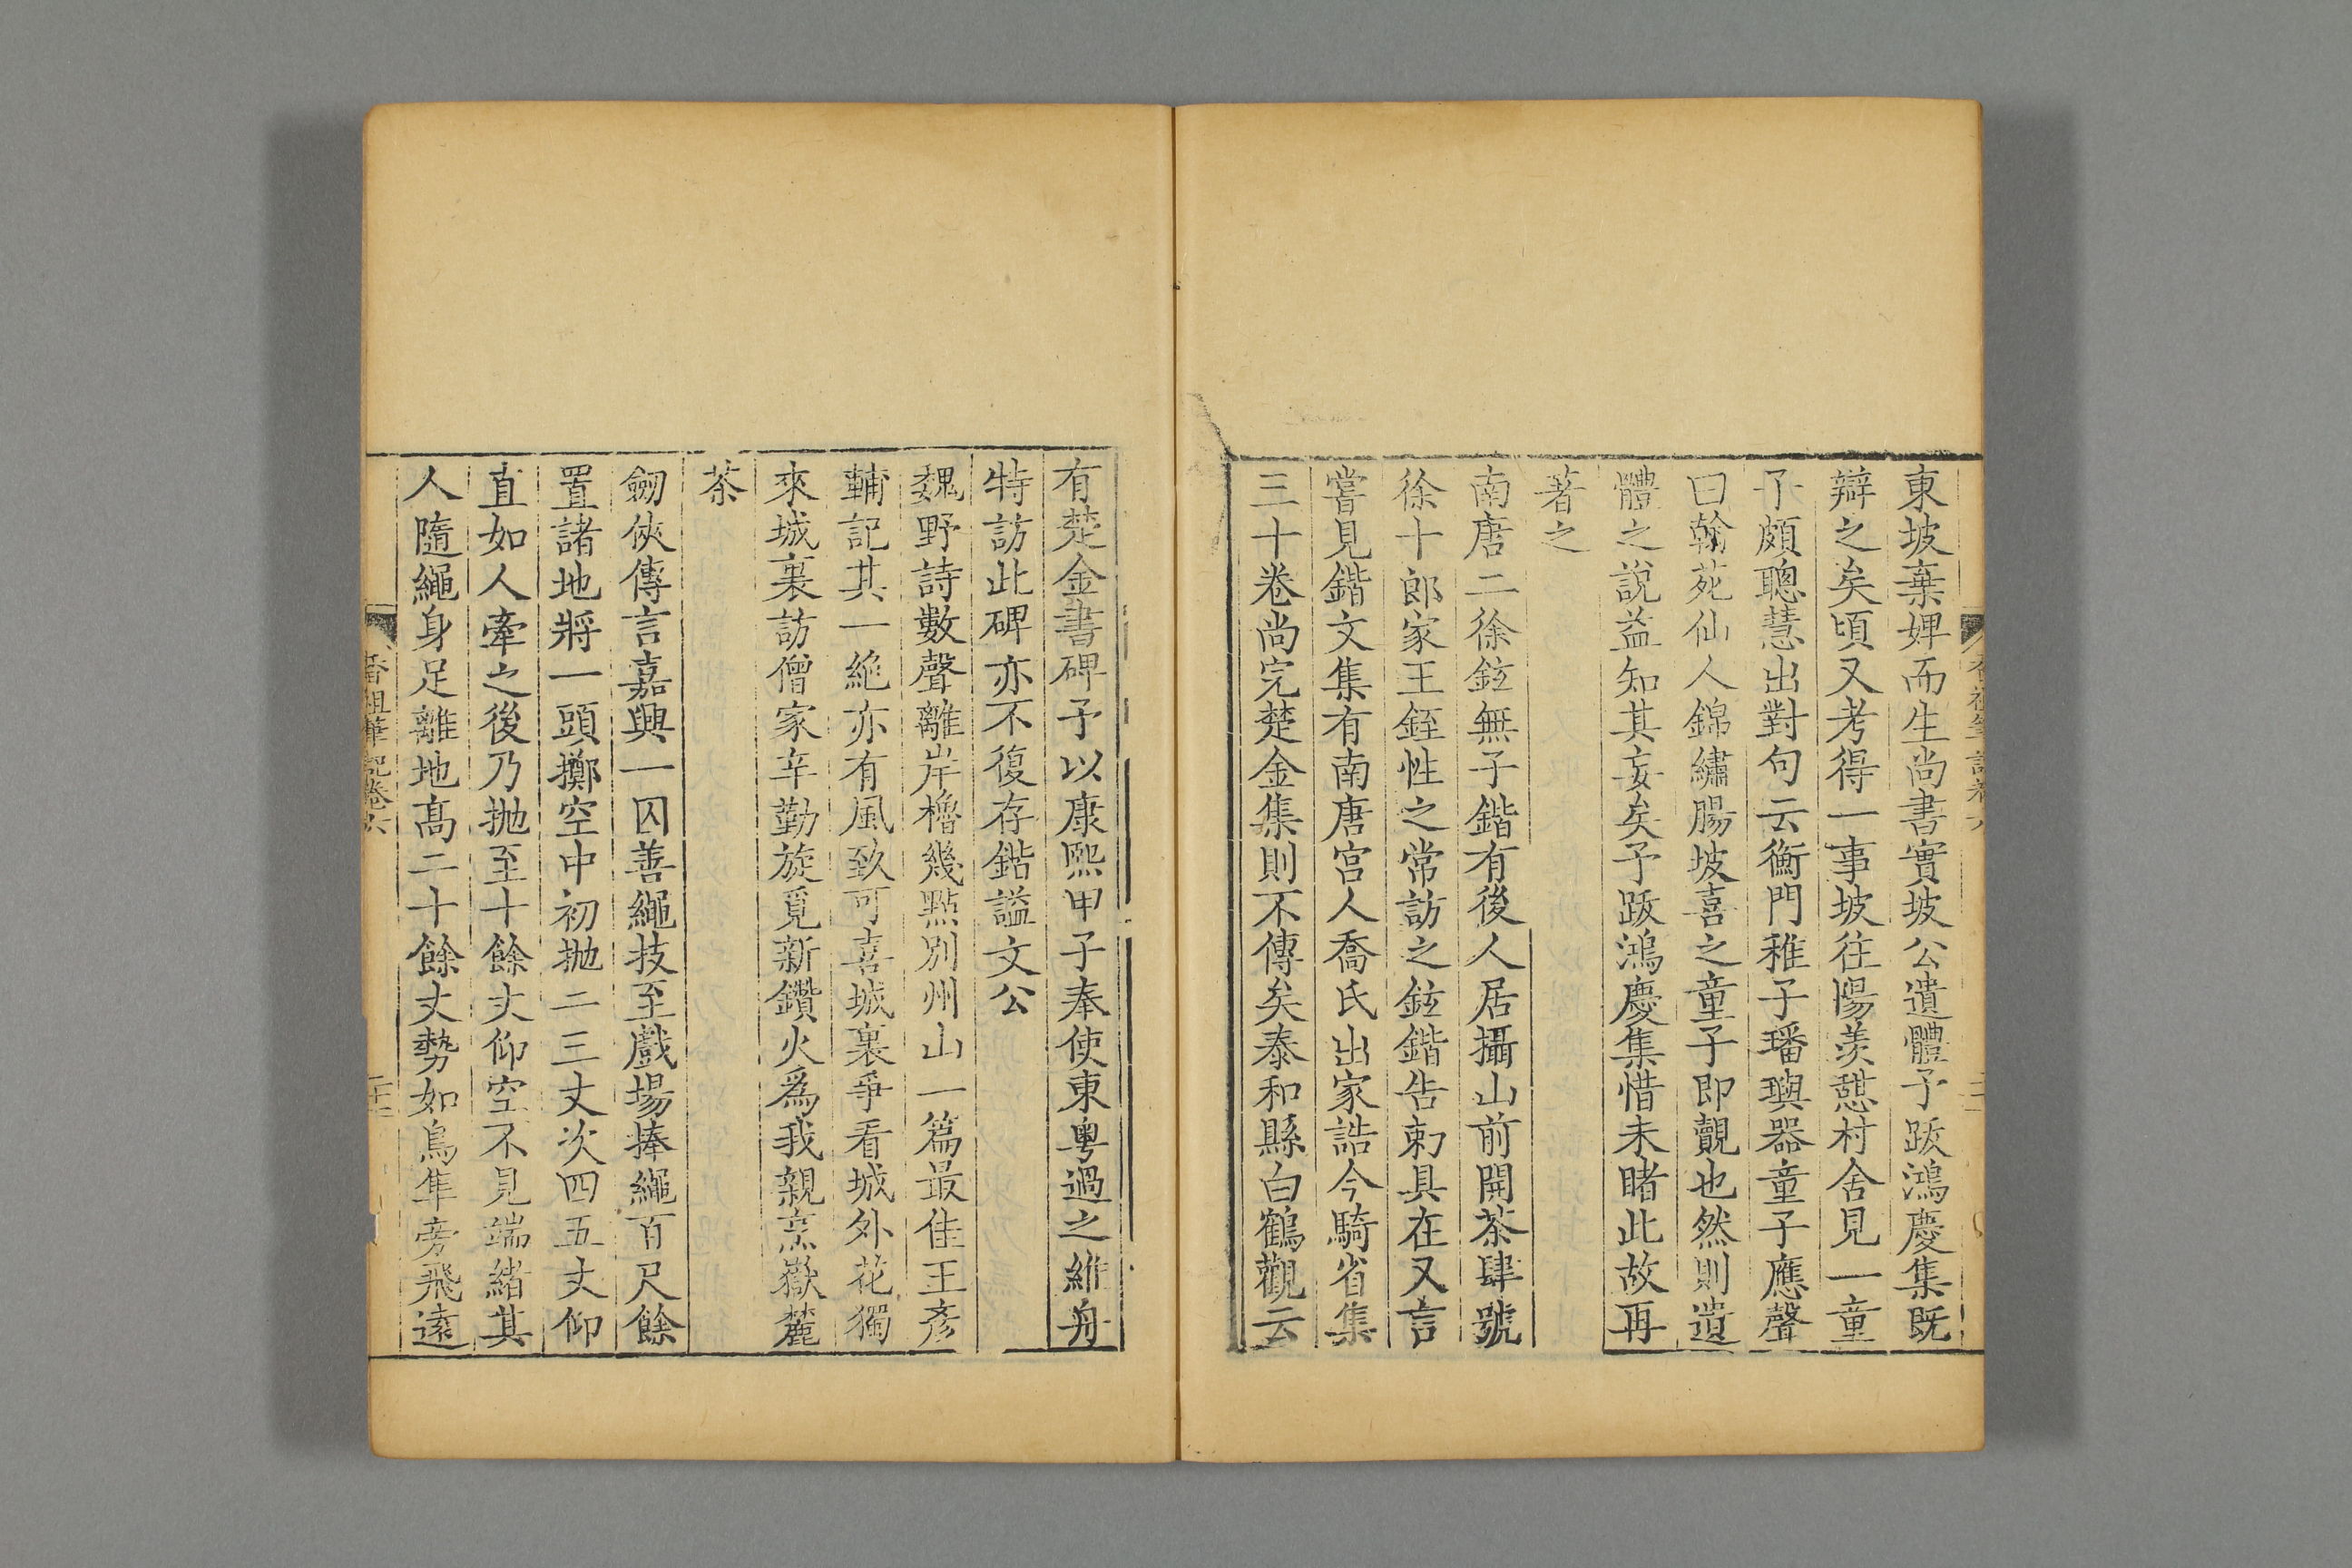 東坡棄婢而生尚書實坡公遺體予跋鴻慶集既
辯之矣頃又考得一事坡往陽羨憇村舍見一童
子頗聰慧出對句云衡門稚子璠璵器童子應聲
曰翰苑仙人錦繡腸坡喜之童子即覿也然則遺
體之說益知其妄矣予跋鴻慶集惜未睹此故再
著之
南唐二徐鉉無子鍇有後人居攝山前開茶肆號
徐十郎家王銍性之常訪之鉉鍇告敕具在又言
嘗見鍇文集有南唐宮人喬氏出家誥今騎省集
三十卷尚完楚金集則不傳矣泰和縣白鶴觀云
有楚金書碑予以康熙甲子奉使東粵過之維舟
特訪此碑亦不復存鍇謚文公
魏野詩數聲離岸櫓幾點別州山一篇最佳王彥
輔記其一絶亦有風致可喜城裏爭看城外花獨
來城裏訪僧家辛勤旋覓新鑽火爲我親烹嶽麓
茶
劒俠傳言嘉興一囚善繩技至戲場捧繩百尺餘
置諸地將一頭擲空中初抛二三丈次四五丈仰
直如人牽之後乃抛至十餘丈仰空不見端緒其
人隨繩身足離地高二十餘丈勢如鳥隼旁飛遠
香祖筆記卷六